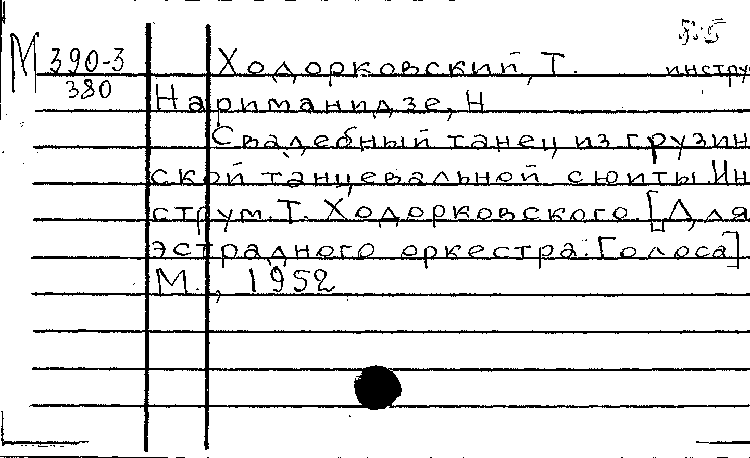 М 390-3 Ходорковский, Т. инстру
380
Нариманидзе, Н
Свадебный танец из грузин
ской танцевальной сюиты. Ин
струм. Т. Ходорковского. [Для
эстрадного оркестра. Голоса]
М., 1952